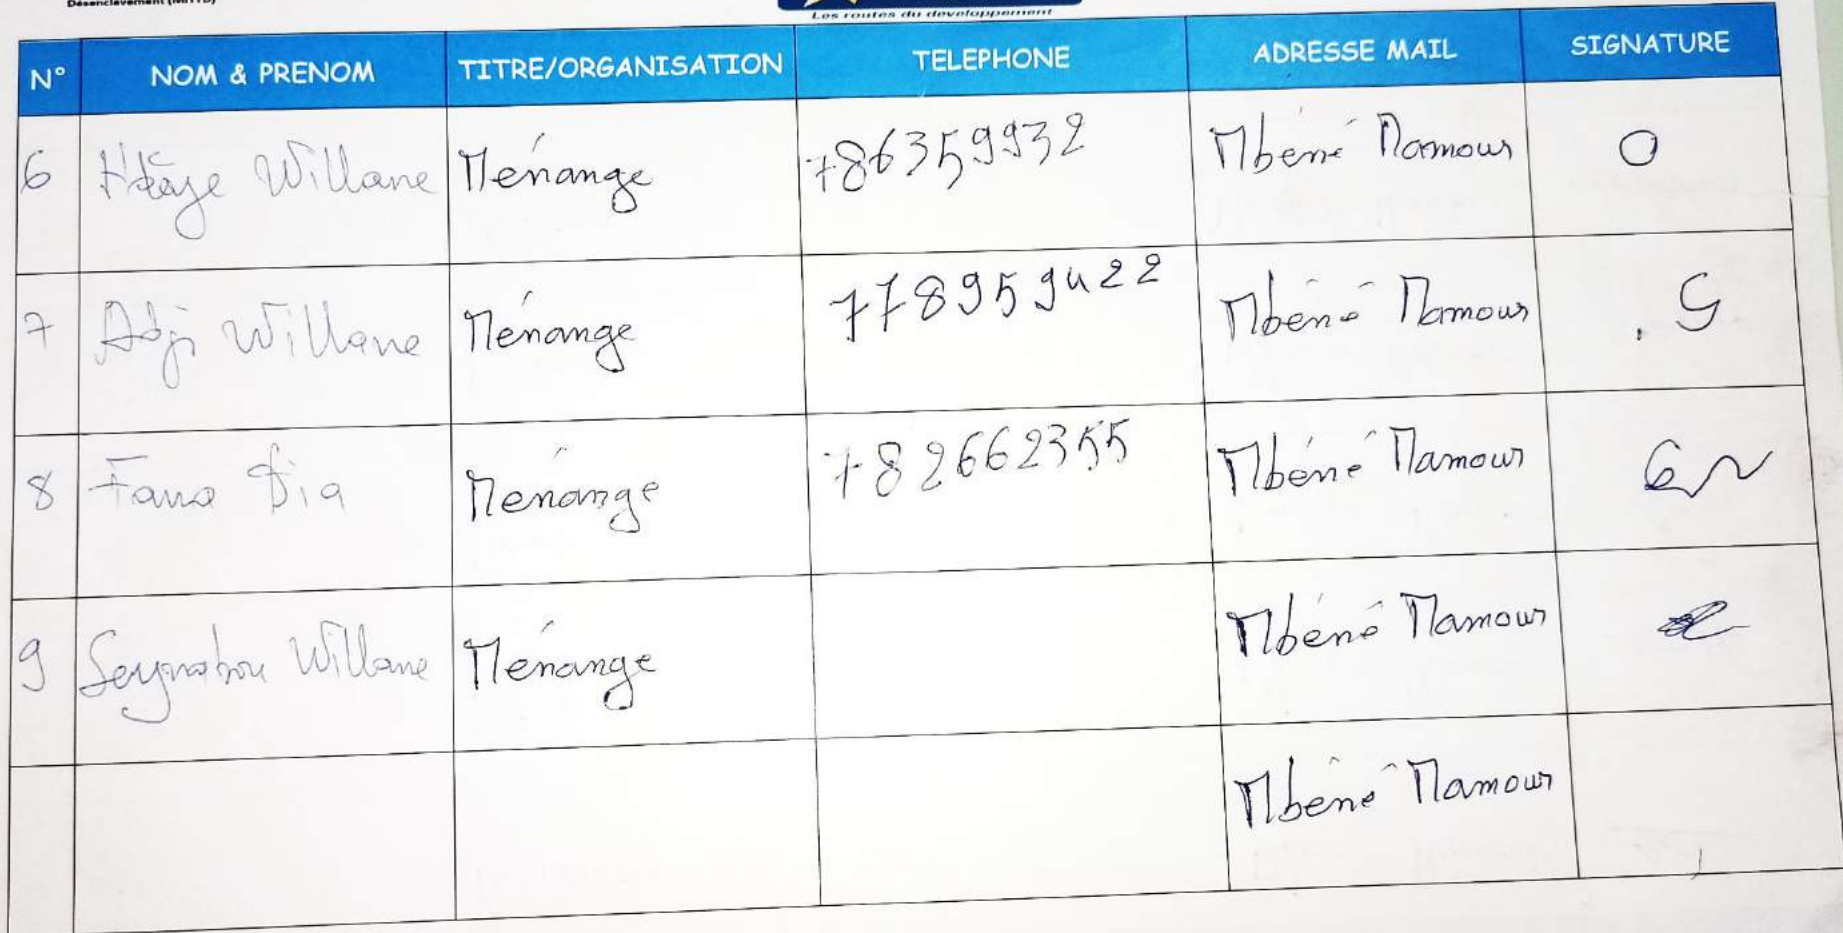 Désenclavement (MITTD)
Les routes du developpement
N° NOM & PRENOM TITRE/ORGANISATION TELEPHONE ADRESSE MAIL SIGNATURE
6 Willane Ménange 786359932 Mbéné Mamour
7 Adji Willane Ménange 778959422 Mbéné Mamour
8 Fama Dia Ménange 782662355 Mbéné Mamour
9 Seynabou Willane Ménange Mbéné Mamour
Mbéné Mamour